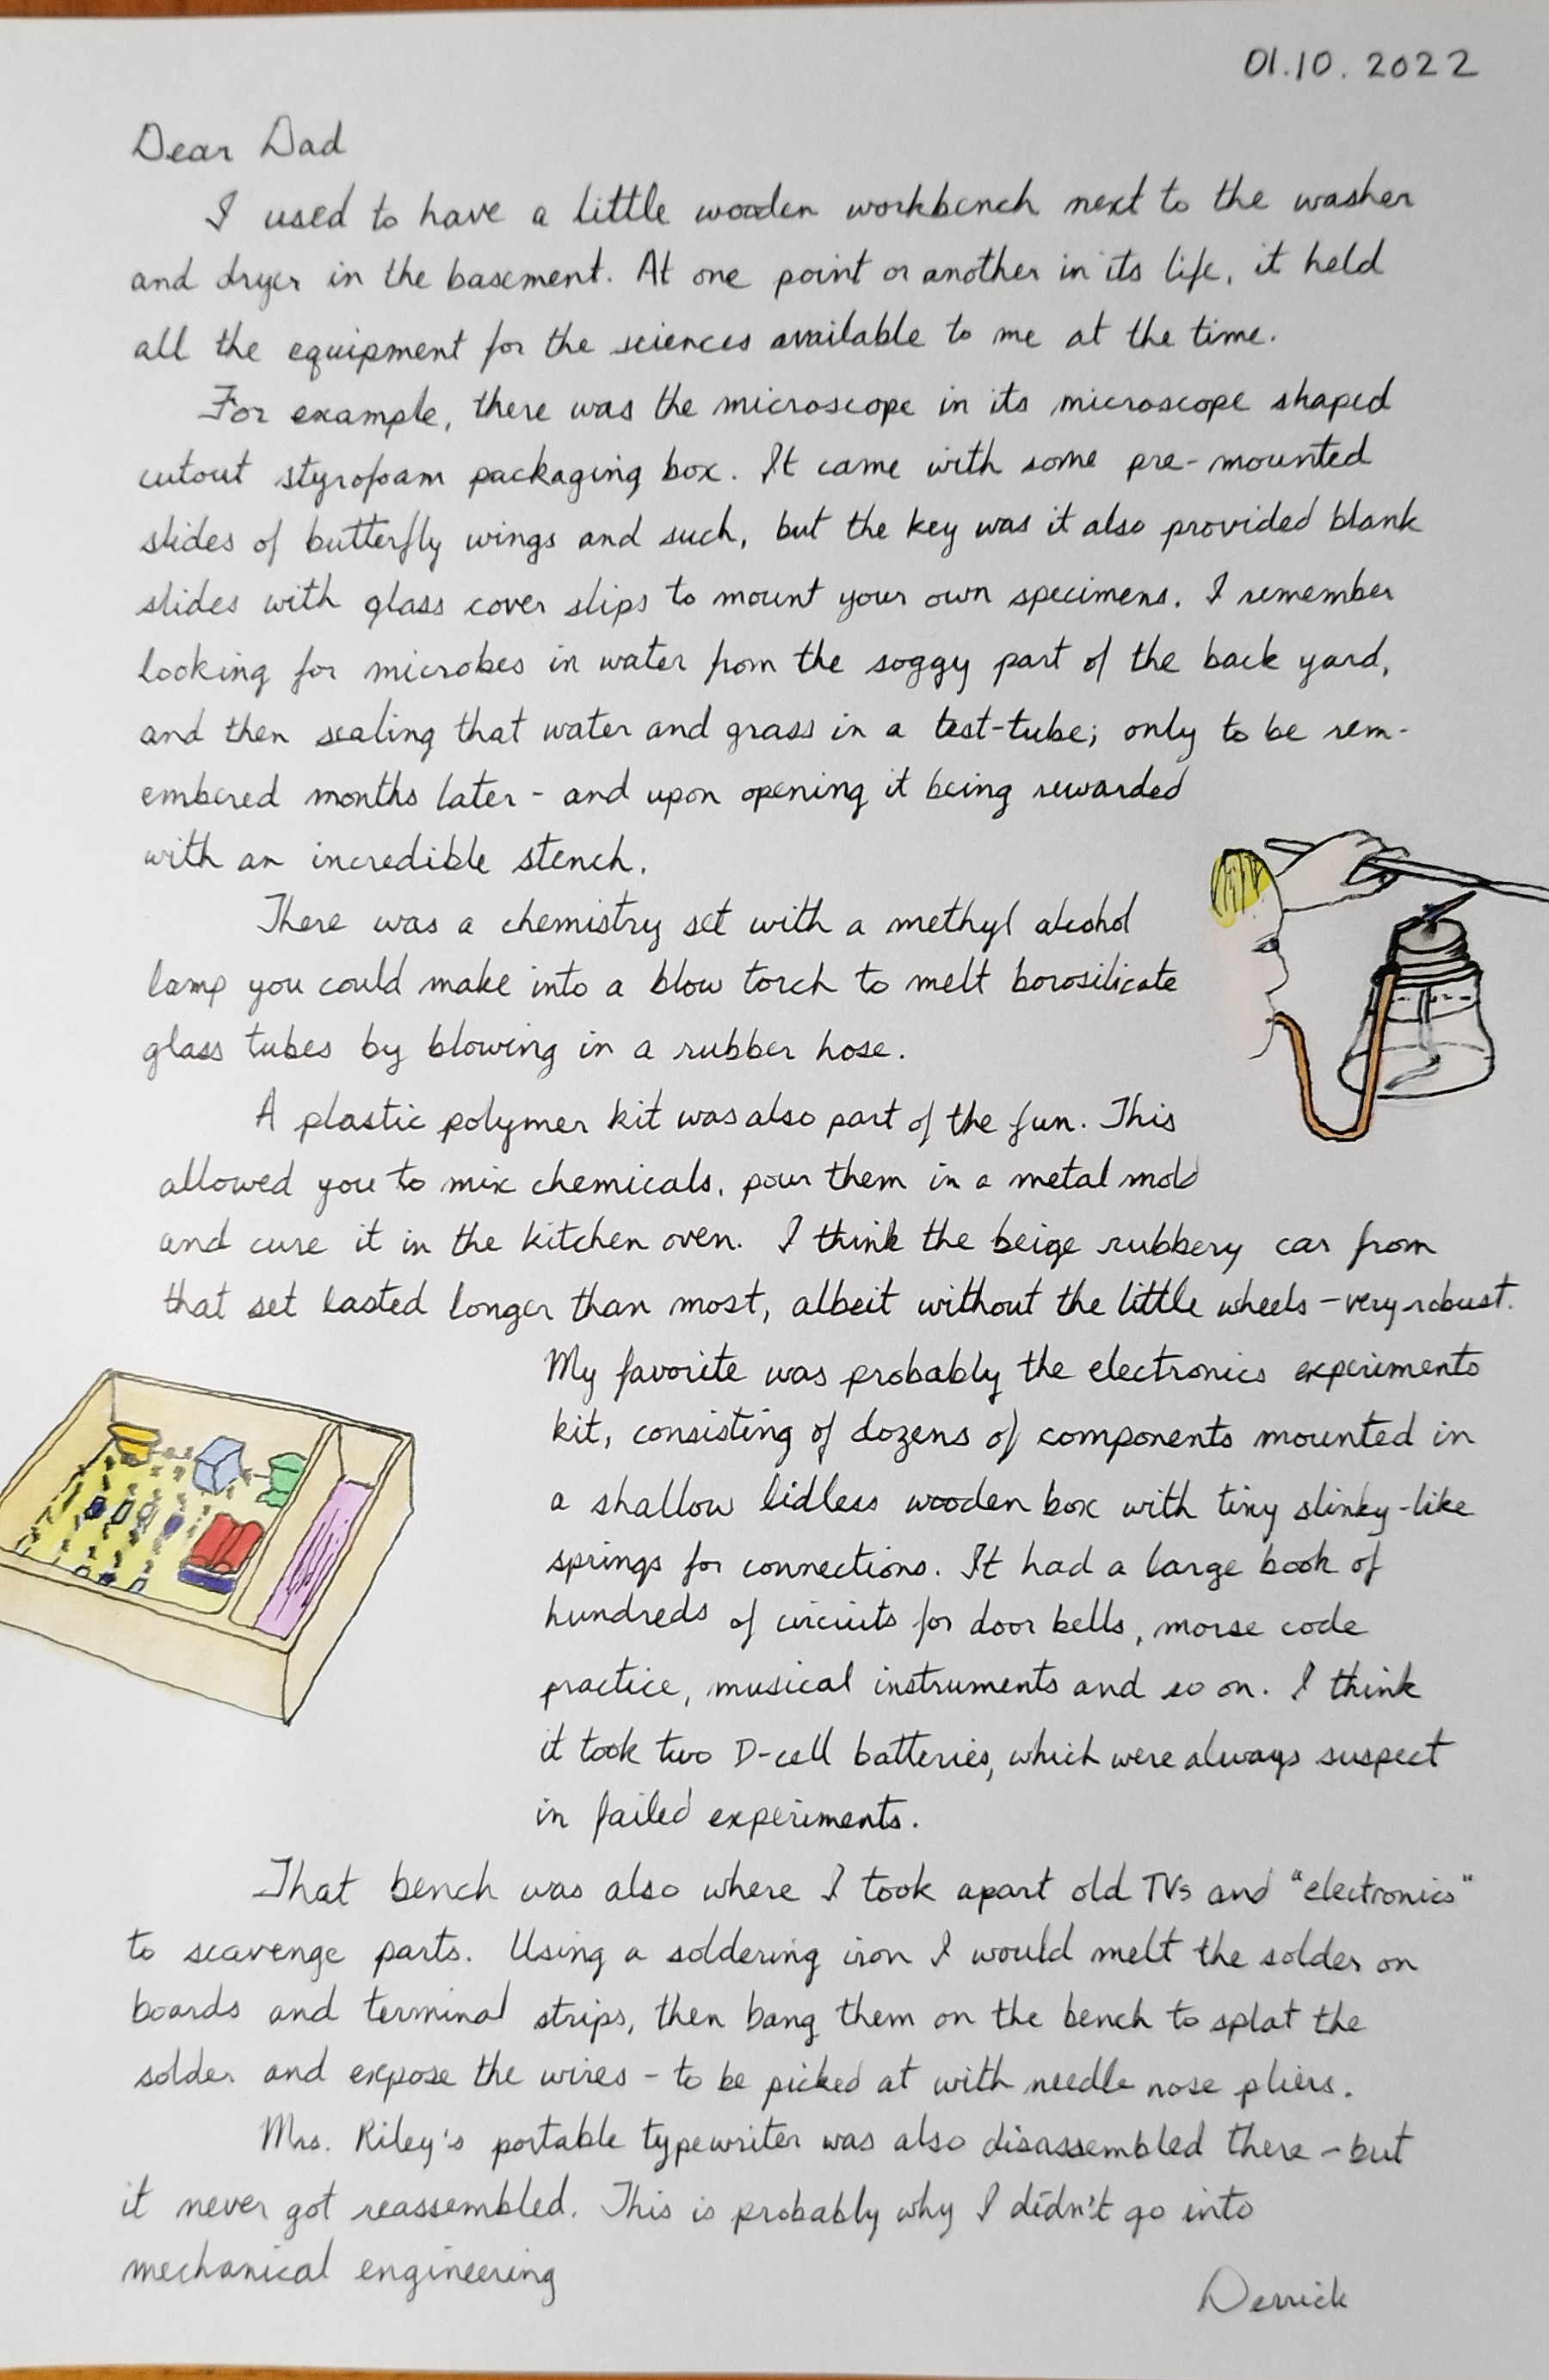 01.10.2022
Dear Dad
I used to have a little wooden workbench next to the washer
and dryer in the basement. At one point or another in its life, it held
all the equipment for the sciences available to me at the time.
For example, there was the microscope in its microscope shaped
cutout styrofoam packaging box. It came with some pre-mounted
slides of butterfly wings and such, but the key was it also provided blank
slides with glass cover slips to mount your own specimens. I remember
looking for microbes in water from the soggy part of the back yard,
and then sealing that water and grass in a test-tube; only to be rem-
embered months later - and upon opening it being rewarded
with an incredible stench.
There was a chemistry set with a methyl alcohol
lamp you could make into a blow torch to melt borosilicate
glass tubes by blowing in a rubber hose.
A plastic polymer kit was also part of the fun. This
allowed you to mix chemicals, pour them in a metal mold
and cure it in the kitchen oven. I think the beige rubbery car from
that set lasted longer than most, albeit without the little wheels - very robust.
My favorite was probably the electronics experiments
kit, consisting of dozens of components mounted in
a shallow lidless wooden box with tiny slinky-like
springs for connections. It had a large book of
hundreds of circuits for door bells, morse code
practice, musical instruments and so on. I think
it took two D-cell batteries, which were always suspect
in failed experiments.
That bench was also where I took apart old TVs and "electronics"
to scavenge parts. Using a soldering iron I would melt the solder on
boards and terminal strips, then bang them on the bench to splat the
solder and expose the wires - to be picked at with needle nose pliers.
Mrs. Riley's portable typewriter was also disassembled there - but
it never got reassembled. This is probably why I didn't go into
mechanical engineering
Derrick